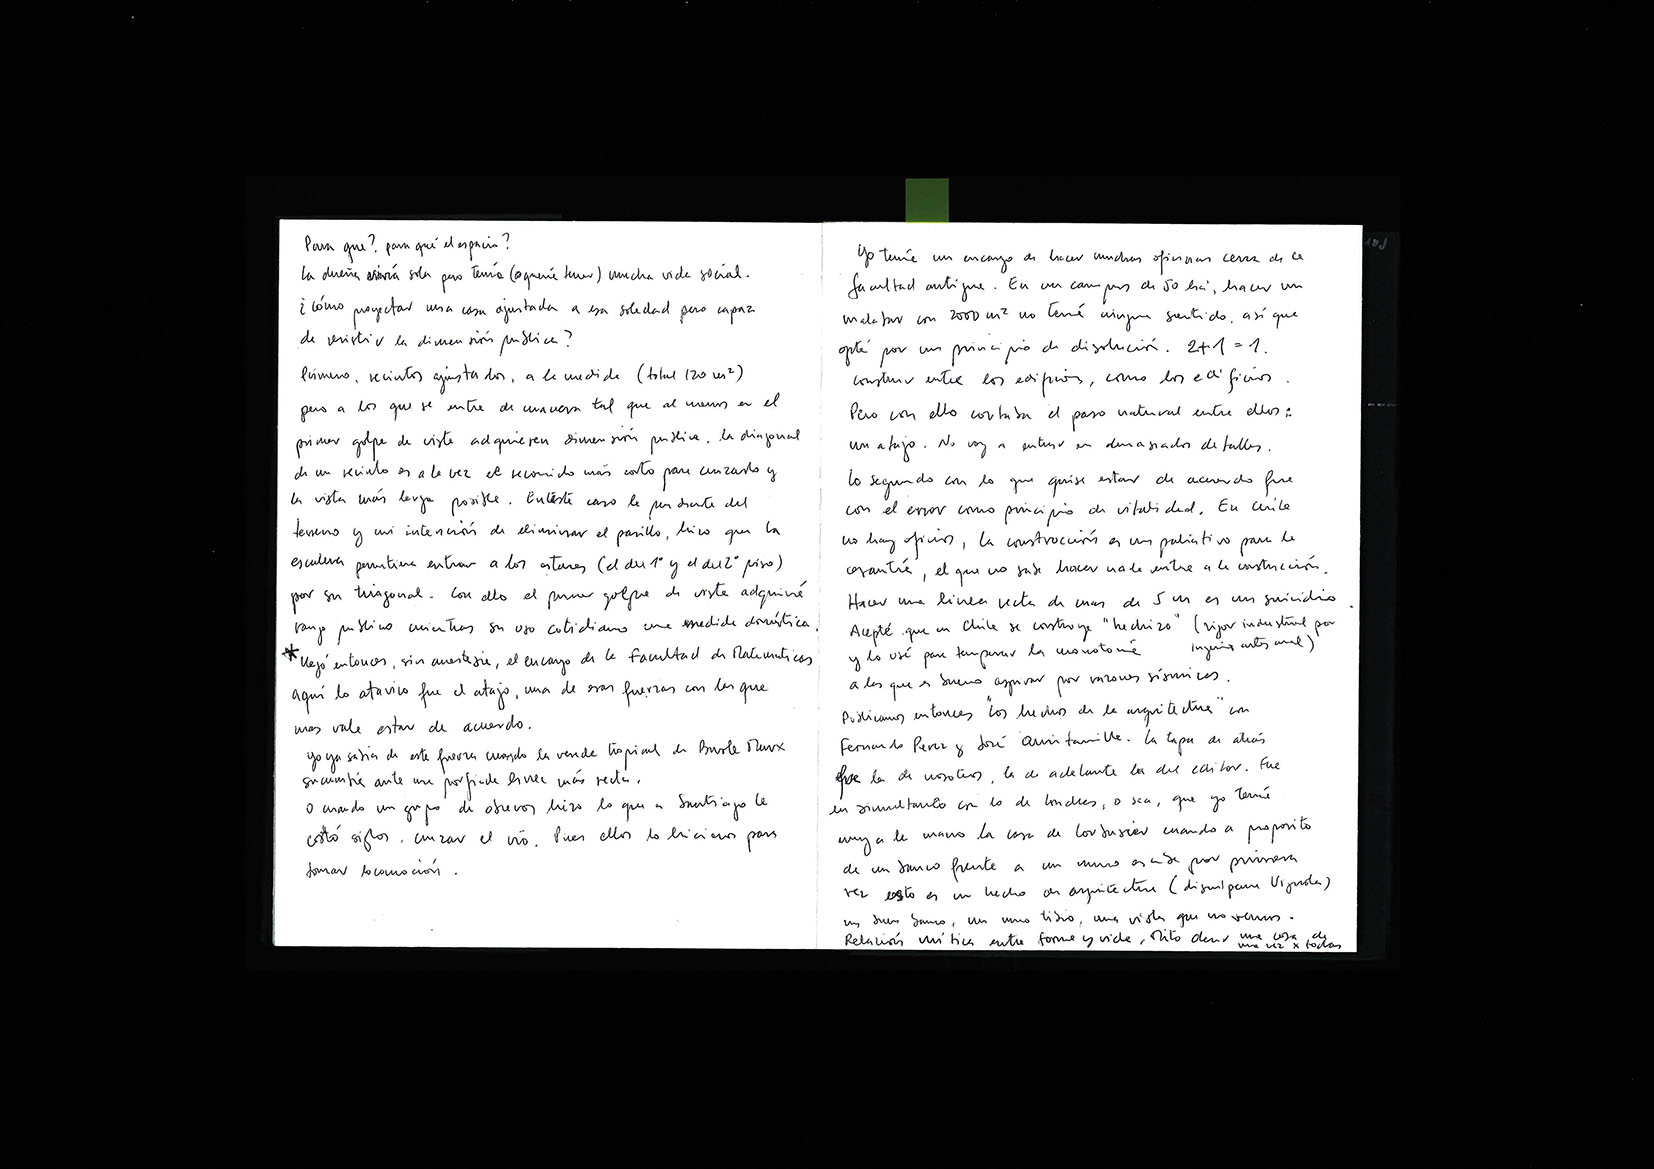 Para que?, para qué el espacio?
La dueña vivirá sola pero tenía (o quería tener) mucha vida social.
¿Cómo proyectar una casa ajustada a esa soledad pero capaz
de resistir la dimensión pública?
Primero, recintos ajustados, a la medida (total 120 m²)
pero a los que se entre de manera tal que al menos en el
primer golpe de vista adquieren dimensión pública. la diagonal
de un recinto es a la vez el recorrido más corto para cruzarlo y
la vista más larga posible. En este caso la pendiente del
terreno y mi intención de eliminar el pasillo, hizo que la
escalera permitiera entrar a los estares (el del 1° y el del 2° piso)
por su diagonal. Con ello el primer golpe de vista adquiría
rango público mientras su uso cotidiano una medida doméstica.
* Llegó entonces, sin anestesia, el encargo de la Facultad de Matematicas
aquí lo atavico fue el atajo, una de esas fuerzas con las que
mas vale estar de acuerdo.
Yo ya sabía de esta fuerza cuando la verde tropical de Burle Marx
sucumbía ante una porfiada linea más recta.
O cuando un grupo de obreros hizo lo que a Santiago le
costó siglos. cruzar el río. Pues ellos lo hicieron para
tomar locomoción.
Yo tenía un encargo de hacer muchas oficinas cerca de la
facultad antigua. En un campus de 50 há, hacer un
malabar con 2000 m² no tenía ningun sentido, así que
opté por un principio de disolución. 2+1=1.
construir entre los edificios, como los edificios.
Pero con ello cortaba el paso natural entre ellos:
un atajo. No voy a entrar en demasiados detalles.
Lo segundo con lo que quise estar de acuerdo fue
con el error como principio de vitalidad. En Chile
no hay oficios, la construcción es un paliativo para la
cesantía, el que no sabe hacer nada entra a la construcción.
Hacer una linea recta de mas de 5 m es un suicidio.
Acepté que en Chile se construye "hechizo" (rigor industrial por
ingenio artesanal)
y lo usé para temperar la monotonía
a las que es bueno aspirar por razones sísmicas.
Publicamos entonces "Los hechos de la arquitectura" con
Fernando Perez y José Quintanilla. La tapa de atrás
fue la de nosotros, la de adelante la del editor. Fue
en simultaneo con lo de Londres, o sea, que yo tenía
muy a la mano la casa de Corbusier cuando a proposito
de un banco frente a un muro escribe por primera
vez esto es un hecho de arquitectura (disculpame Vignola)
un buen banco, un muro tibio, una vista que no vemos.
Relación mítica entre forma y vida, Mito decir una cosa de
una vez x todas